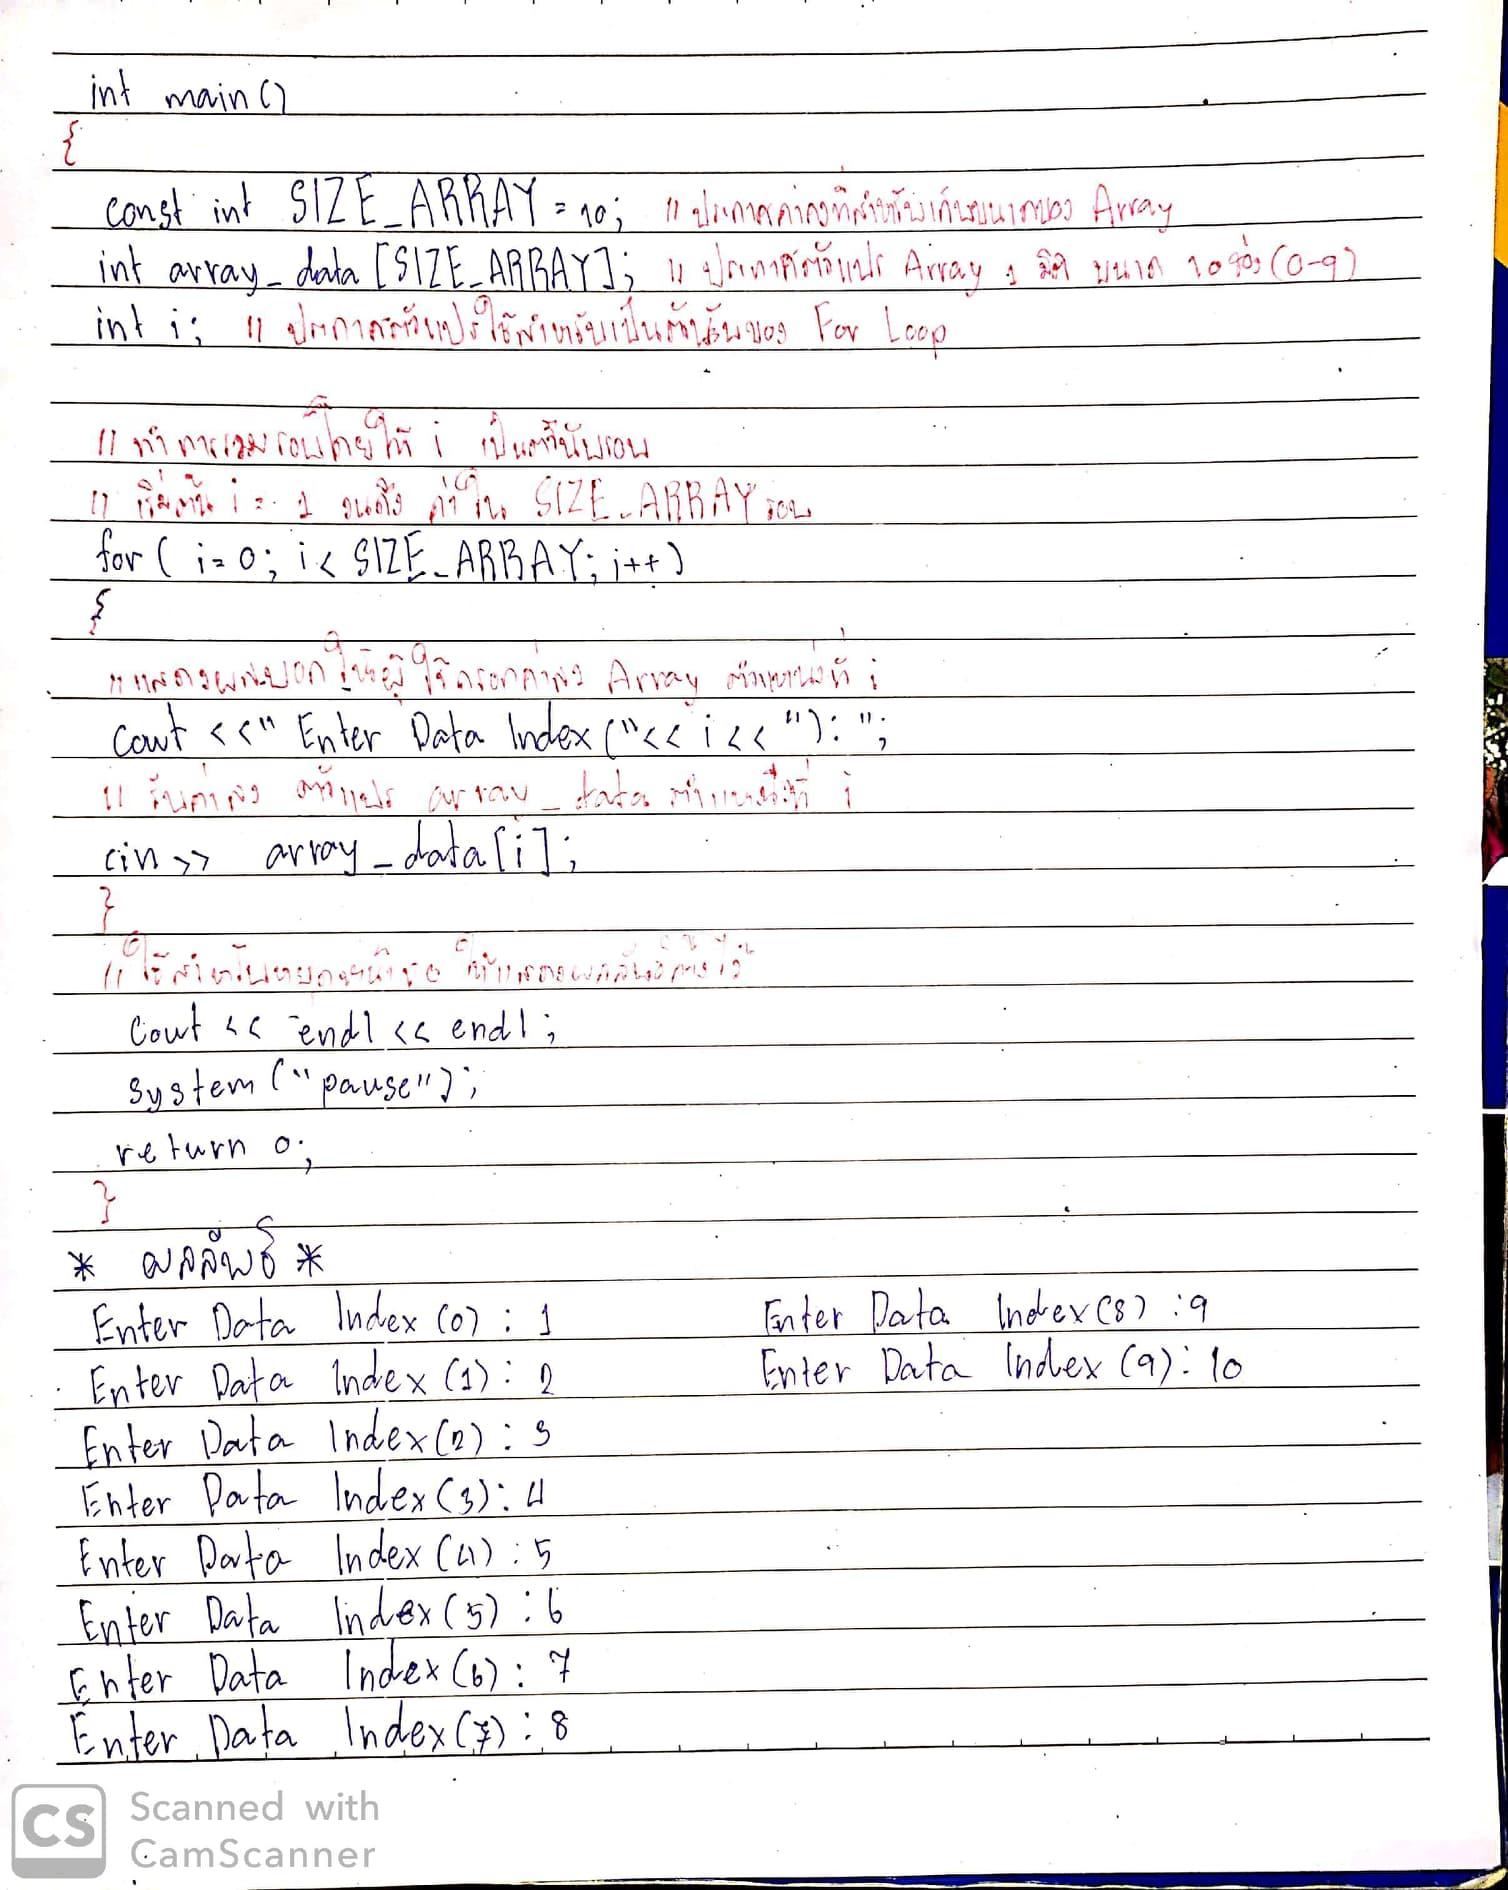 int main()
{
const int SIZE_ARRAY = 10; // ประกาศค่าคงที่สำหรับเก็บขนาดของ Array
int array_data [SIZE_ARRAY]; // ประกาศตัวแปร Array 1 มิติ ขนาด 10 ช่อง (0-9)
int i; // ประกาศตัวแปรใช้สำหรับเป็นตัวนับของ For Loop
// ทำการวนรอบโดยให้ i เป็นตัวนับรอบ
// เริ่มต้น i = 1 จนถึง ค่าใน SIZE_ARRAY รอบ
for ( i= 0; i < SIZE_ARRAY; i++)
{
// แสดงผลบอกให้ผู้ใช้กรอกค่าลง Array ตำแหน่งที่ i
cout <<" Enter Data Index ("<< i << "): ";
// รับค่าลง ตัวแปร array_data ตำแหน่งที่ i
cin >> array_data[i];
}
// ใช้สำหรับหยุดหน้าจอ ให้แสดงผลลัพธ์ค้างไว้
cout << endl << endl;
system ("pause");
return 0;
}
* ผลลัพธ์ *
Enter Data Index (0) : 1
Enter Data Index (1) : 2
Enter Data Index (2) : 3
Enter Data Index (3) : 4
Enter Data Index (4) : 5
Enter Data Index (5) : 6
Enter Data Index (6) : 7
Enter Data Index (7) : 8
Enter Data Index (8) : 9
Enter Data Index (9) : 10
CS Scanned with
CamScanner